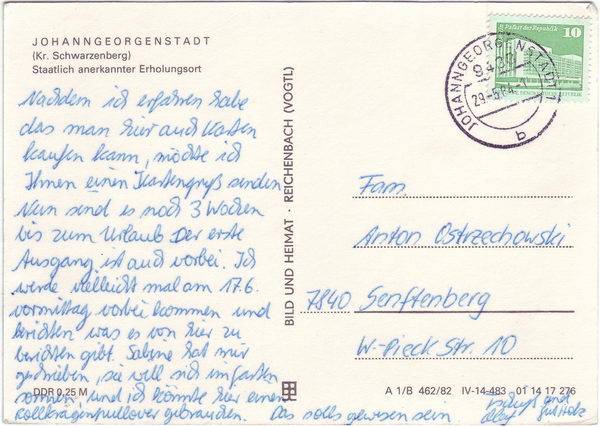 JOHANNGEORGENSTADT
(Kr. Schwarzenberg)
Staatlich anerkannter Erholungsort
Nachdem ich erfahren habe
das man hier auch Karten
kaufen kann, möchte ich
Ihnen einen Kartengruß senden
Nun sind es noch 3 Wochen
bis zum Urlaub. Der erste
Ausgang ist auch vorbei. Ich
werde vielleicht mal am 17.6.
vormittag vorbei kommen und
berichten was es von hier zu
berichten gibt. Sabine hat mir
geschrieben, sie will sich im Garten
sonnen, und ich könnte hier einen
Rollkragenpullover gebrauchen. Das solls gewesen sein.
Tschüß und
Olaf Gut Holz
DDR 0,25 M
BILD UND HEIMAT · REICHENBACH (VOGTL)
A 1/B 462/82 IV-14-483 01 14 17 276
Palast der Republik
10
JOHANNGEORGENSTADT 1
29.-5.84.-1
b
Fam.
Anton Ostrzechowski
7840 Senftenberg
W-Pieck Str. 10